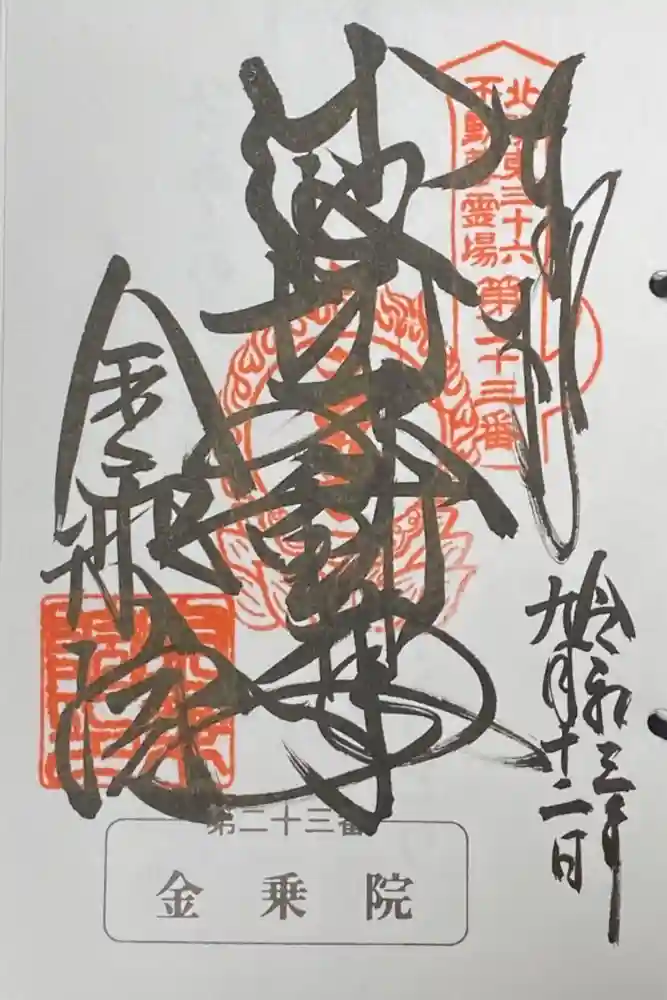 奉拝
北関東三十六
不動尊霊場
第二十三番
令和三年
九月十二日
波切不動尊
金乗院
第二十三番
金乗院